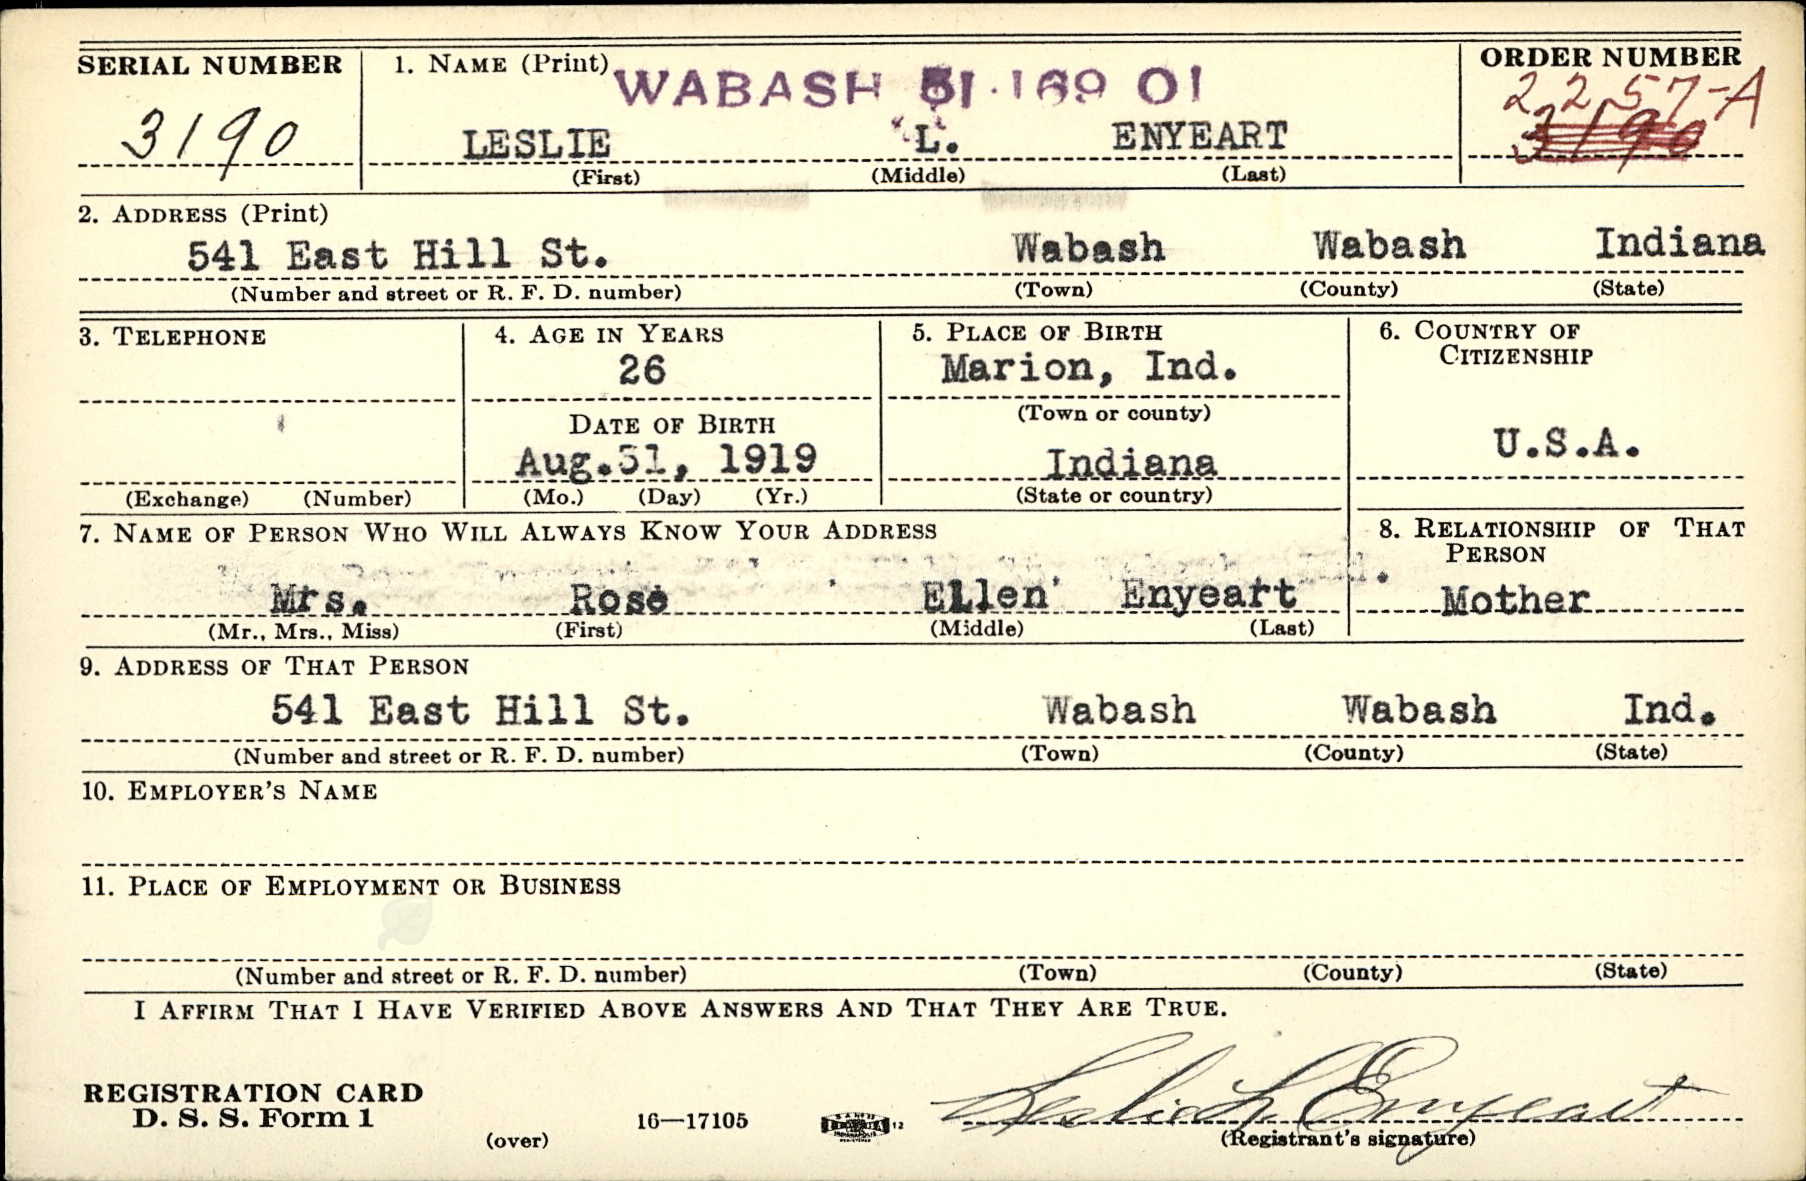 SERIAL NUMBER
1. NAME (Print)
ORDER NUMBER
WABASH 51·169 01
2257-A
3190
3190
LESLIE L. ENYEART
(First) (Middle) (Last)
2. ADDRESS (Print)
541 East Hill St. Wabash Wabash Indiana
(Number and street or R. F. D. number) (Town) (County) (State)
3. TELEPHONE
4. AGE IN YEARS
5. PLACE OF BIRTH
6. COUNTRY OF
CITIZENSHIP
26
Marion, Ind.
DATE OF BIRTH
(Town or county)
U.S.A.
Aug.31, 1919
Indiana
(Exchange) (Number)
(Mo.) (Day) (Yr.)
(State or country)
7. NAME OF PERSON WHO WILL ALWAYS KNOW YOUR ADDRESS
8. RELATIONSHIP OF THAT
PERSON
Mrs. Rose Ellen Enyeart
Mother
(Mr., Mrs., Miss) (First) (Middle) (Last)
9. ADDRESS OF THAT PERSON
541 East Hill St. Wabash Wabash Ind.
(Number and street or R. F. D. number) (Town) (County) (State)
10. EMPLOYER'S NAME
11. PLACE OF EMPLOYMENT OR BUSINESS
(Number and street or R. F. D. number) (Town) (County) (State)
I AFFIRM THAT I HAVE VERIFIED ABOVE ANSWERS AND THAT THEY ARE TRUE.
REGISTRATION CARD
D. S. S. Form 1
(over)
16—17105
12
Leslie L. Enyeart
(Registrant's signature)